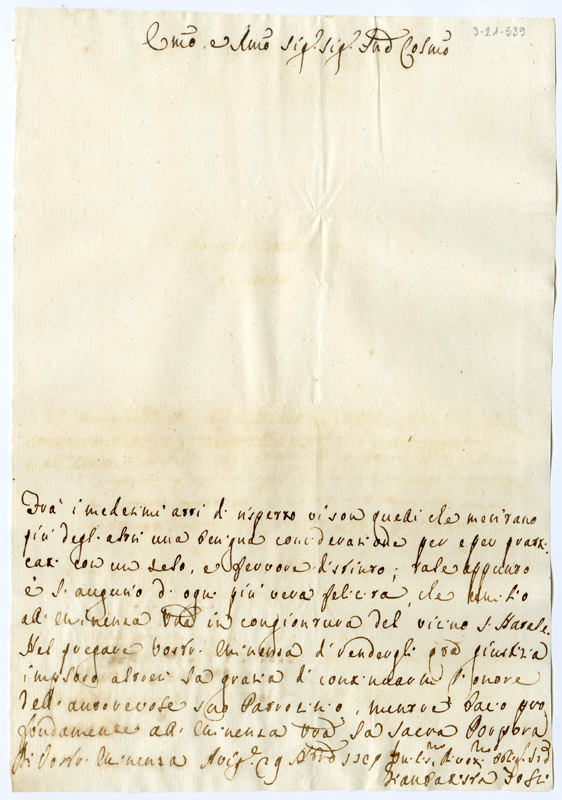 3-21-539
Emo. e Rmo Sig.r Sig.r Pnd Cosmo
Frà i medesimi atti di rispetto vi son quelli che meritano
più degli altri una benigna considerazione per esser pratti-
cati con un zelo, e fervore distinto; tale appunto
è l'augurio di ogni più vera felicità, che umilio
all'Eminenza Vrà in congiontura del vicino S. Natale.
Nel pregare Vostr. Eminenza di rendergli qta giustizia
imploro altresì la grazia di continuarmi l'onore
dell'autorevole suo Patrocinio, mentre bacio pro
fondamente all'Eminenza Vrà la Sacra Porpora
Di Vostr. Eminenza